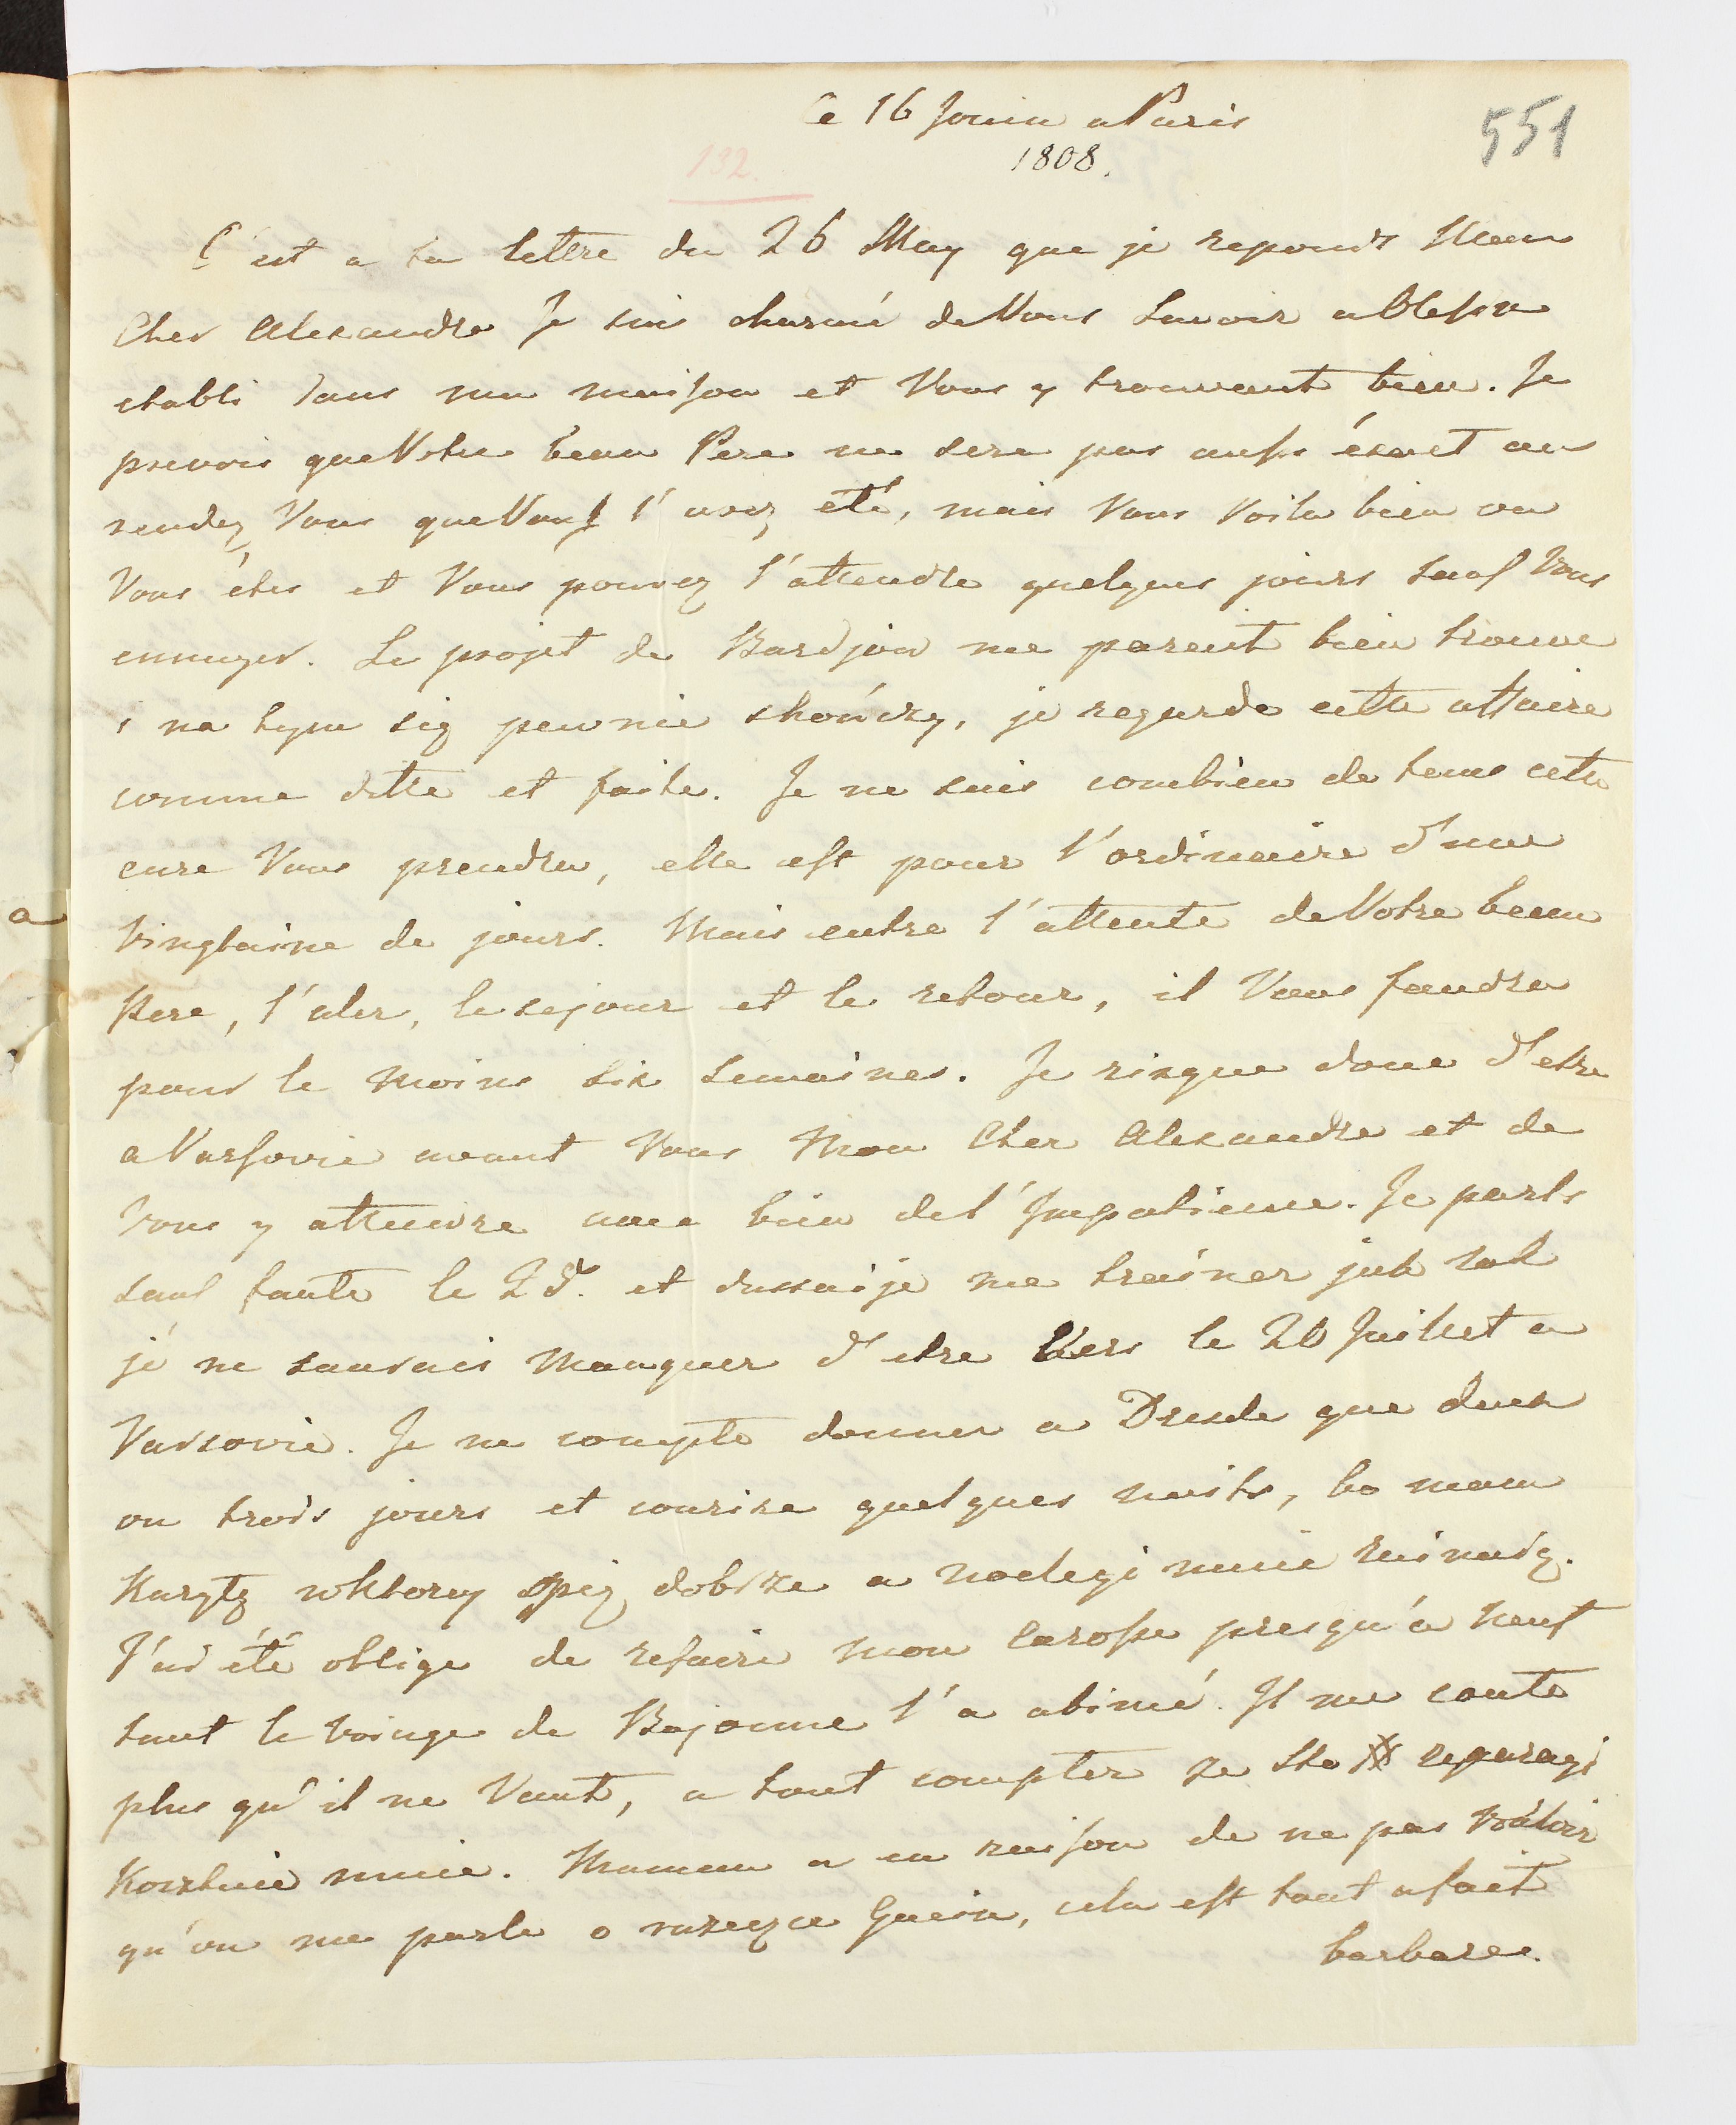 Ce 16 Jouin a Paris
551
1808.
132.
C'est a ta lettre du 26 May que je reponds Mon
Cher Alexandre Je suis charmé de Vous Savoir a
etabli dans ma maison et Vous y trouvant bien. Je
prevois que Votre beau Pere ne sera pas aussi éxact au
rendez Vous que Vous l'avez été, mais Vous Voila bien ou
Vous êtes et Vous pouvez l'attendre quelques jours sauf Vous
ennuyer. Le projet de Bardjow me parait bien trouve
i na tym się pewnie skończy, je regarde cette affaire
comme ditte et faite. Je ne sais combien de tems cette
cure Vous prendra, elle est pour l'ordinaire d'une
Vingtaine de jours. Mais entre l'attente de Votre beau
Pere, l'aler, le sejour et le retour, il Vous faudra
pour le moins six semaines. Je risque donc d'etre
a Varsovie avant Vous Mon Cher Alexandre et de
Vous y attendre avec bien de l'Impatience. Je parts
sans faute le 2d. et dussai je me trainer jak rak
je ne saurais manquer d'etre Vers le 20 Juillet a
Varsovie. Je ne compte donner a Dresde que deux
ou trois jours et courire quelques nuits, bo mam
Karytę w ktorey spię dobrze a noclegi mnie ruinuią.
J'ai été oblige de refaire mon Carosse presqu'a neuf
tant le Voiage de Bajonne l'a abimé. Il me coute
plus qu'il ne Vaut, a tout compter ze sto reparacyi
Kosztuie mnie. Maman a eu raison de ne pas Vouloir
qu'on me parle o Guein, cela est tout afait
barbare.